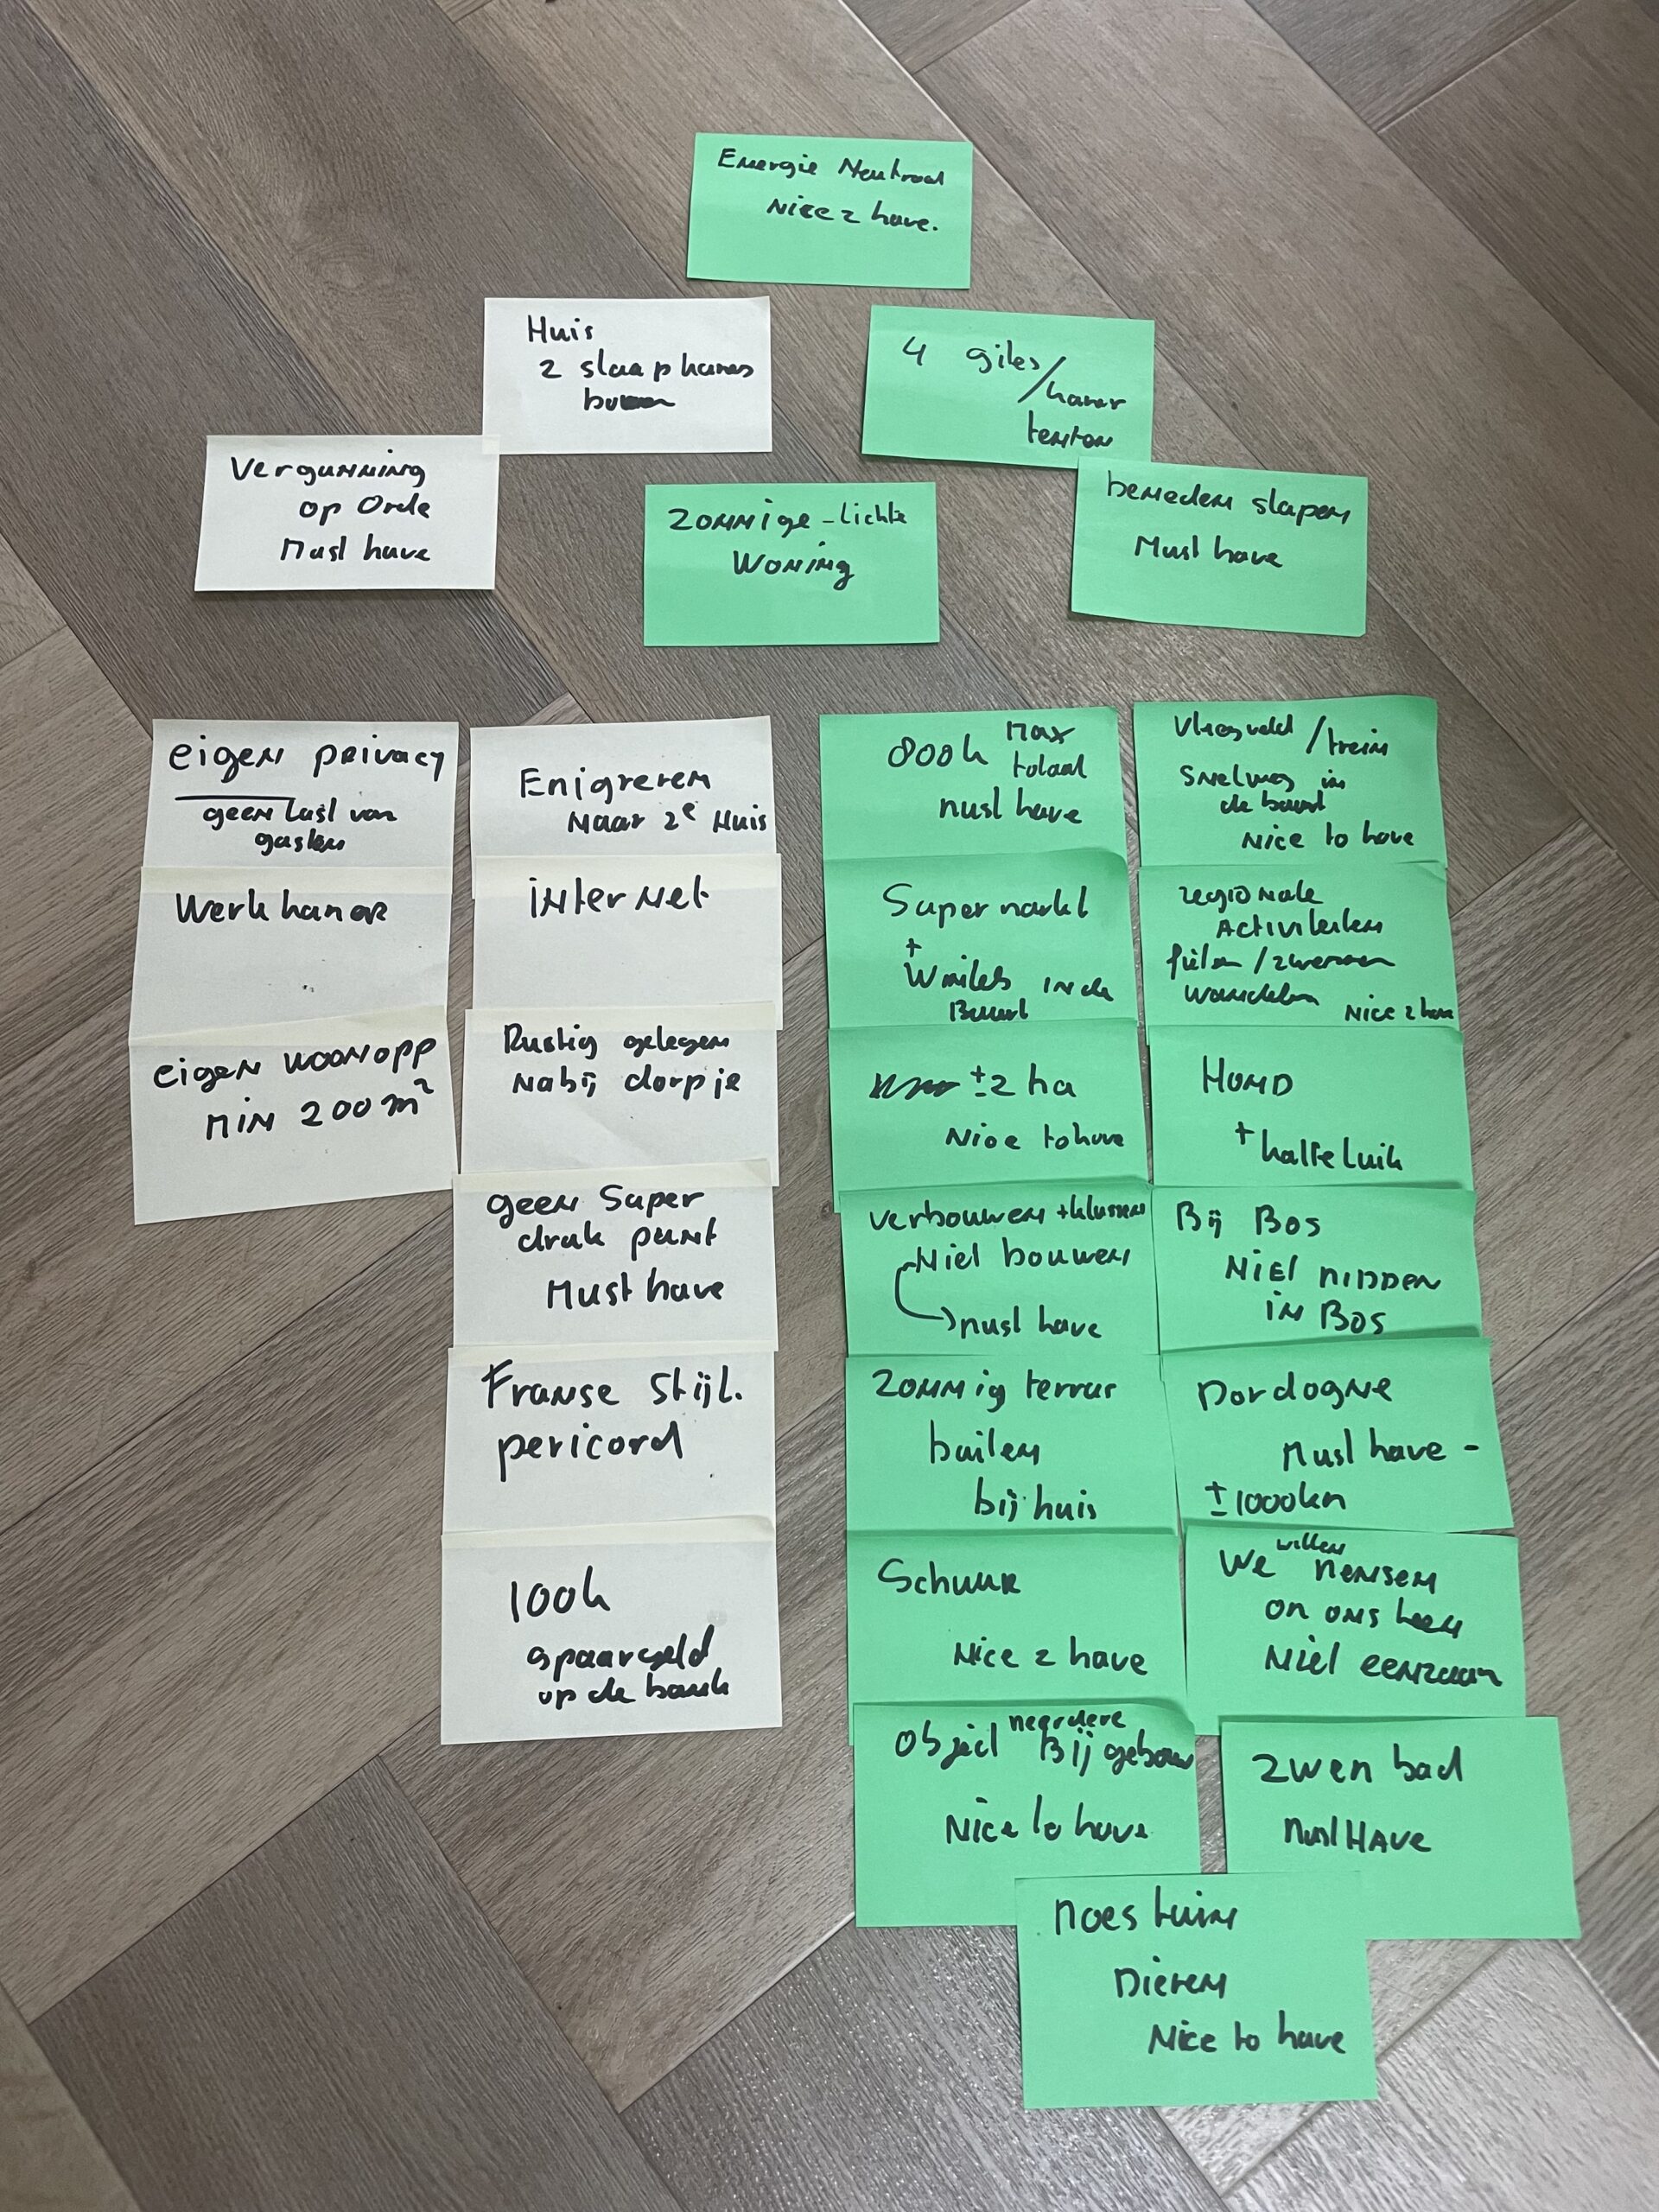 Energie Neutraal
Nice 2 have.
Huis
2 slaapkamers
4 gites/kamer
tenten
Vergunning
op Orde
Must have
Zonnige - Lichte
Woning
beneden slapen
Must have
eigen privacy
geen last van
gasten
Werkkamer
eigen woonopp
min 200 m²
Enigreren
Naar 2e Huis
internet
Rustig gelegen
Nabij dorpje
geen Super
druk punt
Must have
Franse Stijl.
pericord
100k
spaargeld
op de bank
800k Max
totaal
must have
Supermarkt
+
Winkels in de
Buurt
±2 ha
Nice to have
verbouwen + klussen
Niet bouwen
must have
Zonnig terras
buiten
bij huis
Schuur
Nice 2 have
Object meerdere
Bijgebouw
Nice to have
Vliegveld / trein
Snelweg in
de buurt
Nice to have
regionale
Activiteiten
fietsen / zwemmen
wandelen Nice 2 have
HOND
+ katteluik
Bij Bos
Niet midden
in Bos
Dordogne
Must have -
± 1000km
We willen mensen
om ons heen
Niet eenzaam
Zwembad
Must HAVE
Moestuin
Dieren
Nice to have